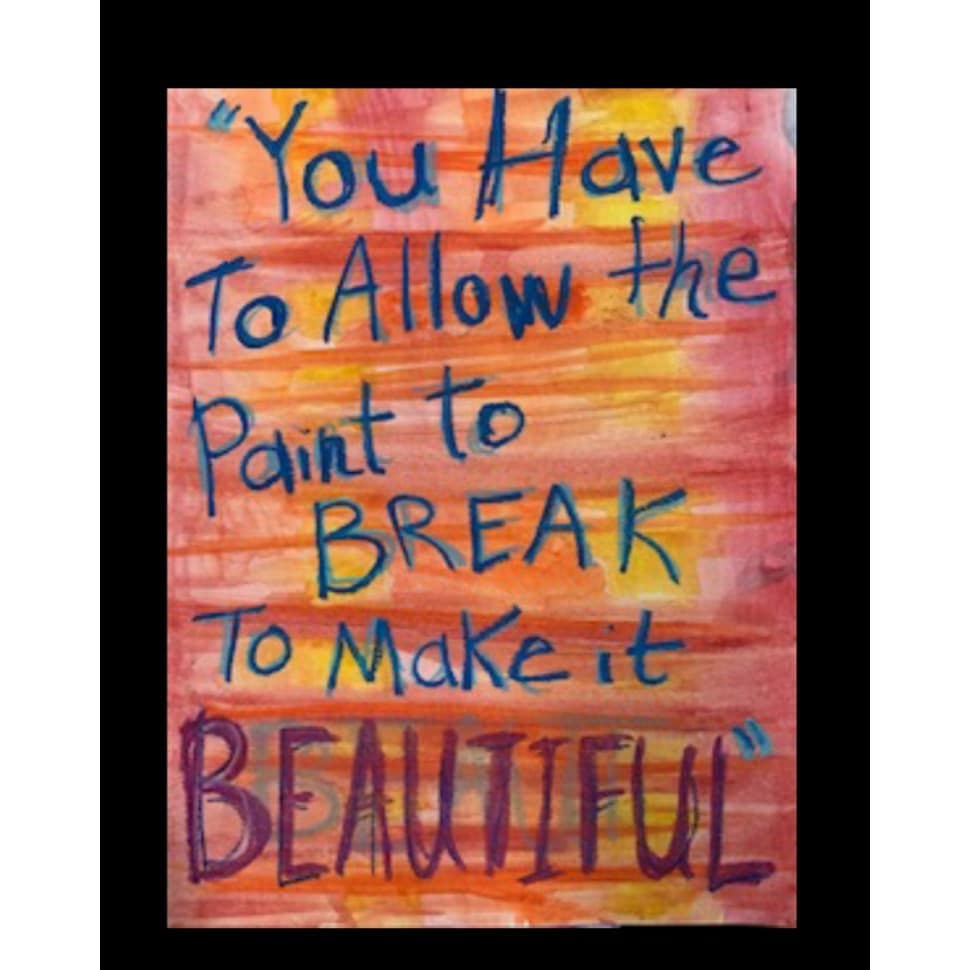 "You Have
To Allow the
Paint to
BREAK
To Make it
BEAUTIFUL"